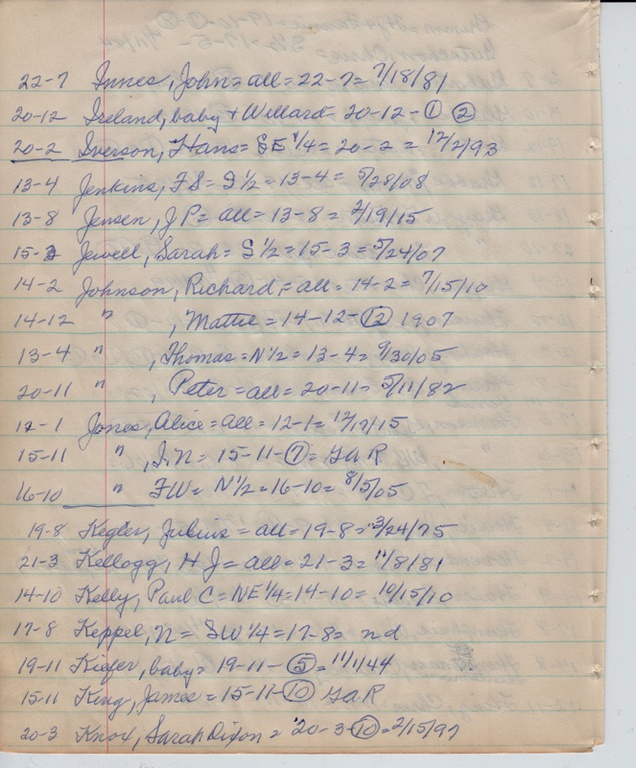 22-7 Innes, John = all = 22-7 = 7/18/81
20-12 Ireland, baby + Willard = 20-12 - ① ②
20-2 Iverson, Hans = SE 1/4 = 20-2 = 12/2/93
13-4 Jenkins, F S = S 1/2 = 13-4 = 5/28/08
13-8 Jensen, J P = all = 13-8 = 2/19/15
15-3 Jewell, Sarah = S 1/2 = 15-3 = 5/24/07
14-2 Johnson, Richard = all = 14-2 = 7/15/10
14-12 " , Mattie = 14-12 - ⑫ 1907
13-4 " , Thomas = N 1/2 = 13-4 = 9/30/05
20-11 " , Peter = all = 20-11 = 5/11/82
12-1 Jones, Alice = all = 12-1 = 12/17/15
15-11 " , I. N = 15-11 - ⑦ = GAR
16-10 " FW = N 1/2 = 16-10 = 8/5/05
19-8 Kegler, Julius = all = 19-8 = 3/24/75
21-3 Kellogg, H J = all = 21-3 = 11/8/81
14-10 Kelly, Paul C = NE 1/4 = 14-10 = 10/15/10
17-8 Keppel, N = SW 1/4 = 17-8 = nd
19-11 Kiefer, baby = 19-11 - ⑤ = 1/1/44
15-11 King, James = 15-11 - ⑩ GAR
20-3 Knox, Sarah Dixon = 20-3 - ⑩ = 2/15/97